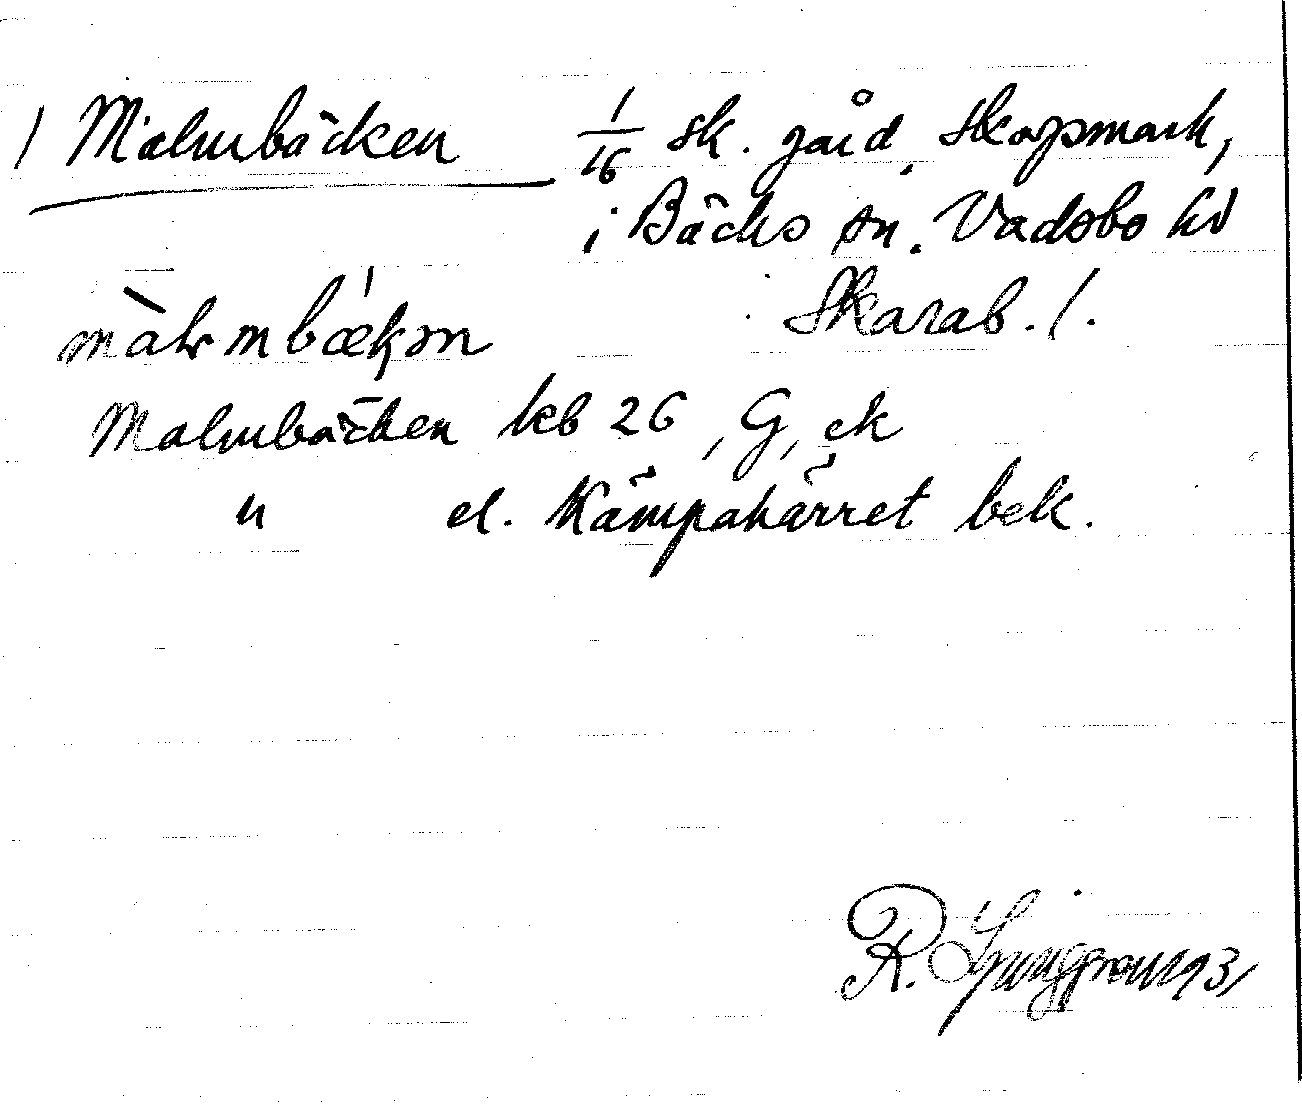 1 Malmbäcken 1/16 sk. gård, Skagsmark,
i Bäcks sn. Vadsbo hd
Skarab. l.
màlmbækən
Malmbäcken kb 26, G, ek
" el. Kämpakärret bek.
R. Ljunggren 1931